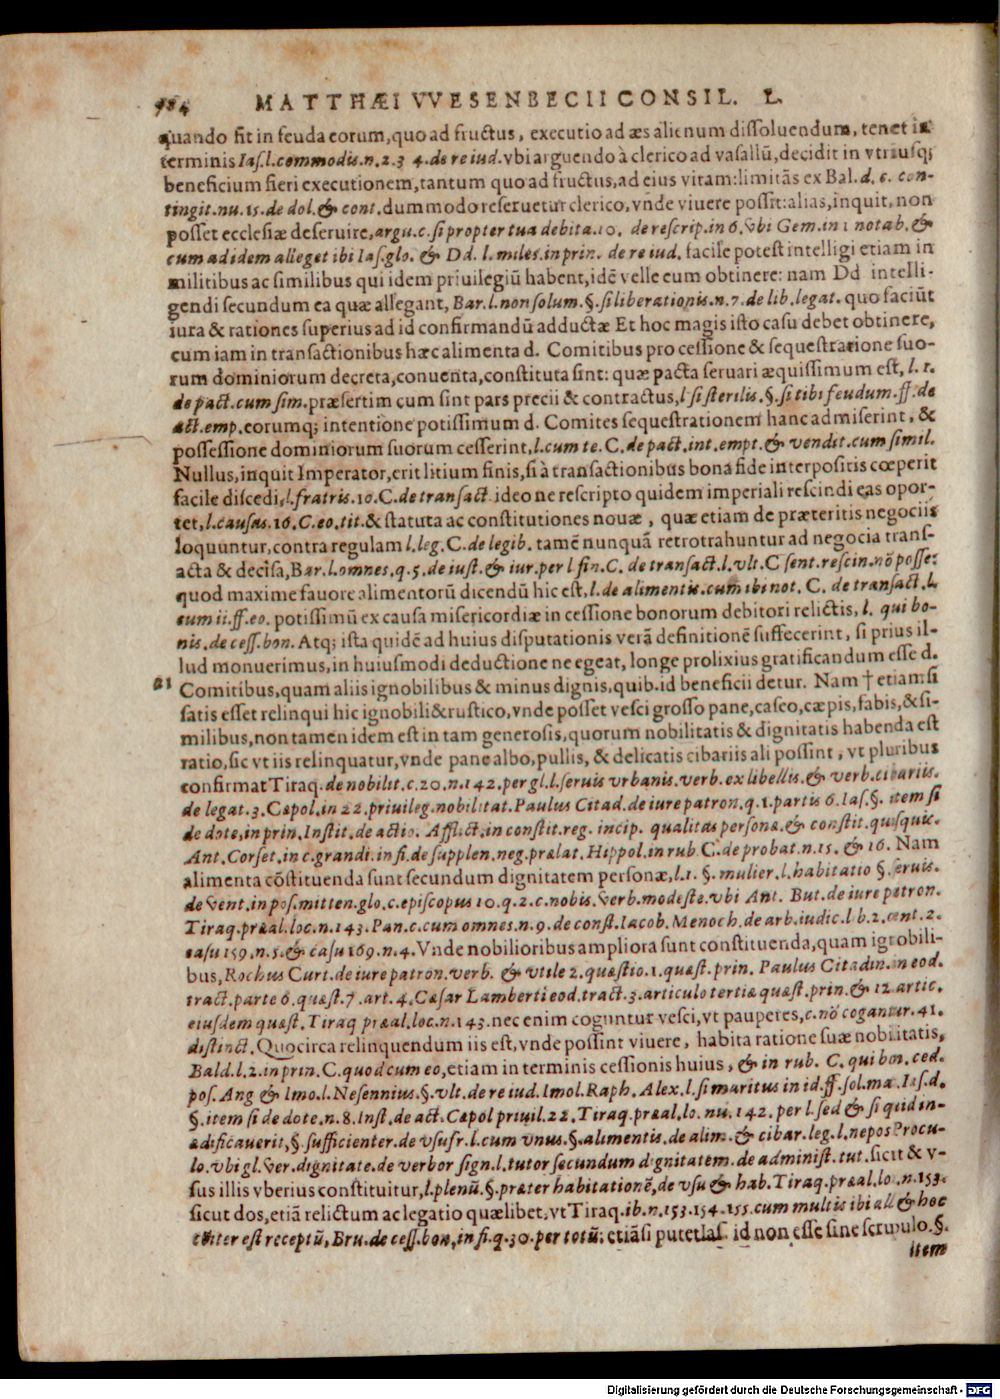 984 MATTHÆI VVESENBECII CONSIL. L.
quando fit in feuda eorum, quo ad fructus, executio ad æs alienum dissoluendum, tenet in
terminis Ias. l. commodis. n. 2. 3 4. de re iud. vbi arguendo à clerico ad vasallū, decidit in vtriusq;
beneficium fieri executionem, tantum quo ad fructus, ad eius vitam: limitās ex Bal. d. c. con-
tingit. nu. 15. de dol. & cont. dummodo reseruetur clerico, vnde viuere possit: alias, inquit, non
posset ecclesiæ deseruire, argu. c. si propter tua debita. 10. de rescrip. in 6. vbi Gem. in 1 notab. &
cum ad idem alleget ibi Ias. glo. & Dd. l. miles. in prin. de re iud. facile potest intelligi etiam in
militibus ac similibus qui idem priuilegiū habent, idē velle eum obtinere: nam Dd intelli-
gendi secundum ea quæ allegant, Bar. l. non solum. §. si liberationis. n. 7. de lib. legat. quo faciūt
iura & rationes superius ad id confirmandū adductæ Et hoc magis isto casu debet obtinere,
cum iam in transactionibus hæc alimenta d. Comitibus pro cessione & sequestratione suo-
rum dominiorum decreta, conuenta, constituta sint: quæ pacta seruari æquissimum est, l. 1.
de pact. cum sim. præsertim cum sint pars precii & contractus, l si sterilis. §. si tibi feudum. ff. de
act. emp. eorumq; intentione potissimum d. Comites sequestrationem hanc admiserint, &
possessione dominiorum suorum cesserint, l. cum te. C. de pact. int. empt. & vendit. cum simil.
Nullus, inquit Imperator, erit litium finis, si à transactionibus bona fide interpositis cœperit
facile discedi, l. fratris. 10. C. de transact. ideo ne rescripto quidem imperiali rescindi eas opor-
tet, l. causas. 16. C. eo. tit. & statuta ac constitutiones nouæ, quæ etiam de præteritis negociis
loquuntur, contra regulam l. leg. C. de legib. tamē nunquā retrotrahuntur ad negocia trans-
acta & decisa, Bar. l. omnes. q. 5. de iust. & iur. per l fin. C. de transact. l. vlt. C sent. rescin. nō posse:
quod maxime fauore alimentorū dicendū hic est, l. de alimentis. cum ibi not. C. de transact. l.
cum ii. ff. eo. potissimū ex causa misericordiæ in cessione bonorum debitori relictis, l. qui bo-
nis. de cess. bon. Atq; ista quidē ad huius disputationis verā definitionē suffecerint, si prius il-
lud monuerimus, in huiusmodi deductione ne egeat, longe prolixius gratificandum esse d.
21 Comitibus, quam aliis ignobilibus & minus dignis, quib. id beneficii detur. Nam † etiamsi
satis esset relinqui hic ignobili & rustico, vnde posset vesci grosso pane, caseo, cæpis, fabis, & si-
milibus, non tamen idem est in tam generosis, quorum nobilitatis & dignitatis habenda est
ratio, sic vt iis relinquatur, vnde pane albo, pullis, & delicatis cibariis ali possint, vt pluribus
confirmat Tiraq. de nobilit. c. 20. n. 142. per gl. l. seruis vrbanis. verb. ex libellis. & verb. cibariis.
de legat. 3. Cæpol. in 22. priuileg. nobilitat. Paulus Citad. de iure patron. q. 1. partis 6. Ias. §. item si
de dote, in prin. Instit. de actio. Afflict. in constit. reg. incip. qualitas personæ. & constit. quisquis.
Ant. Corset. in c. grandi. in fi. de supplen. neg. prælat. Hippol. in rub C. de probat. n. 15. & 16. Nam
alimenta cōstituenda sunt secundum dignitatem personæ, l. 1. §. mulier. l. habitatio §. seruis.
de vent. in pos. mitten. glo. c. episcopus 10. q. 2. c. nobis. verb. modeste. vbi Ant. But. de iure patron.
Tiraq. præal. loc. n. 143. Pan. c. cum omnes. n. 9. de const. Iacob. Menoch. de arb. iudic. l b. 2. cent. 2.
casu 159. n. 5. & casu 169. n. 4. Vnde nobilioribus ampliora sunt constituenda, quam ignobili-
bus, Rochus Curt. de iure patron. verb. & vtile 2. quæstio. 1. quæst. prin. Paulus Citadin. in eod.
tract. parte 6. quæst. 7. art. 4. Cæsar Lamberti eod. tract. 3. articulo tertiæ quæst. prin. & 12. artic.
eiusdem quæst. Tiraq præal. loc. n. 143. nec enim coguntur vesci, vt pauperes, c. nō cogantur. 41.
distinct. Quocirca relinquendum iis est, vnde possint viuere, habita ratione suæ nobilitatis,
Bald. l. 2. in prin. C. quod cum eo, etiam in terminis cessionis huius, & in rub. C. qui bon. ced.
pos. Ang & Imo. l. Nesennius. §. vlt. de re iud. Imol. Raph. Alex. l. si maritus in id. ff. sol. ma. Ias. d.
§. item si de dote. n. 8. Inst. de act. Cæpol priuil. 22. Tiraq. præal. lo. nu. 142. per l. sed & si quid in-
ædificauerit, §. sufficienter. de vsufr. l. cum vnus. §. alimentis. de alim. & cibar. leg. l. nepos Procu-
lo. vbi gl. ver. dignitate. de verbor sign. l. tutor secundum dignitatem. de administ. tut. sicut & v-
sus illis vberius constituitur, l. plenū. §. præter habitationē, de vsu & hab. Tiraq. præal. lo. n. 153.
sicut dos, etiā relictum ac legatio quælibet, vt Tiraq. ib. n. 153. 154. 155. cum multis ibi all & hoc
cōiter est receptū, Bru. de cess. bon. in fi. q. 30. per totū: etiāsi putet Ias. id non esse sine scrupulo. §.
item
Digitalisierung gefördert durch die Deutsche Forschungsgemeinschaft - DFG